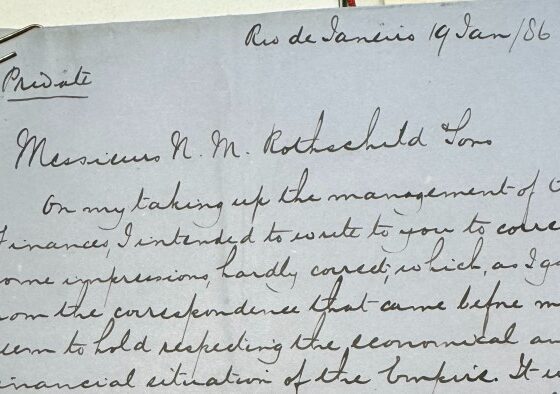 Rio de Janeiro 19 Jan/86
Private
Messieurs N. M. Rothschild Sons
On my taking up the management of t
Finances, I intended to write to you to corre
ome impressions, hardly correct, which, as I ga
rom the correspondence that came before m
eem to hold respecting the economical an
inancial situation of the Empire. It w